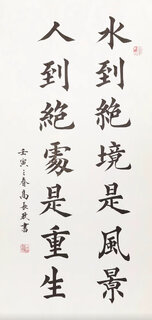 水到絕境是風景
人到絕處是重生
壬寅之春高長放書